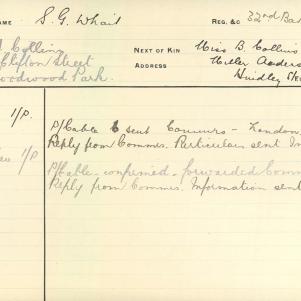 NAME S. G. Whait REG. No 32nd Bat
Collins
Clifton Street
Goodwood Park.
NEXT OF KIN Miss B. Collins
ADDRESS Miller Anders
Hindley St
1/P. P/Cable sent Commrs - London
Reply from Commrs. Particulars sent In
1/P P/Cable - confirmed - forwarded Comm
Reply from Commrs. Information sent